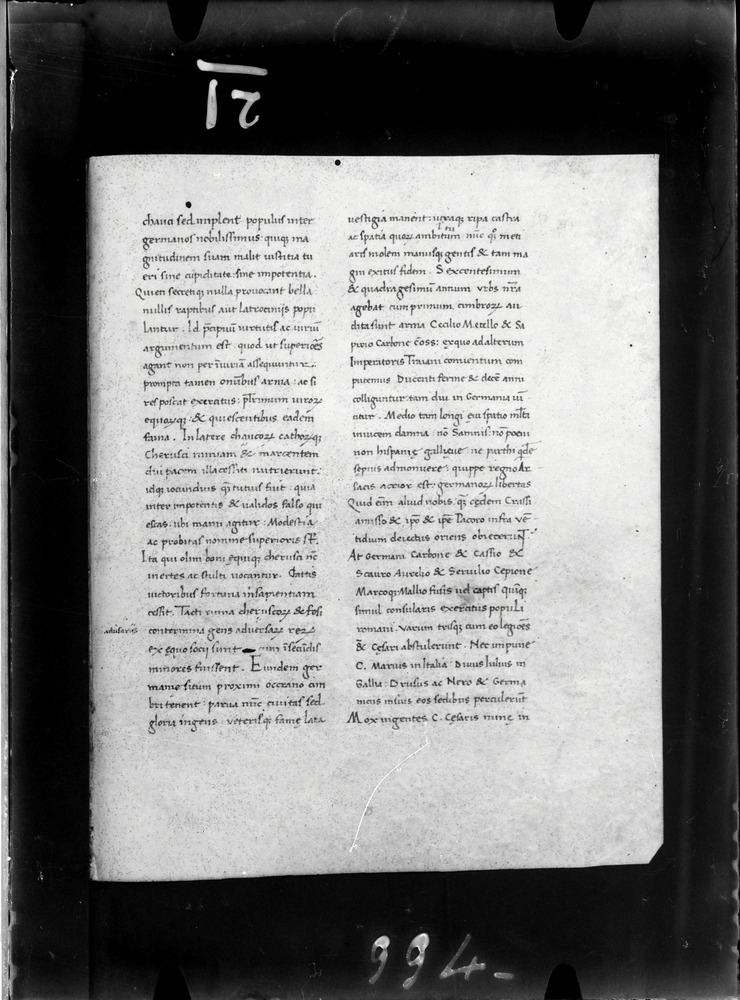 12
chauci sed implent· populus inter
germanos nobilissimus: quiq; ma
gnitudinem suam malit iustitia tu
eri sine cupiditate: sine impotentia.
Quieti secretiq; nulla prouocant bella
nullis raptibus aut latrociniis popu
lantur. Id p̄cipuū uirtutis ac uiriū
argumentum est· quod ut superiores
agant non per iniuriā assequuntur.
prompta tamen omnibus arma: ac si
res poscat exercitus: plurimum uiroꝝ
equoꝝq;· & quiescentibus eadem
fama. In latere chaucoꝝ cathoꝝq;
Cherusci nimiam & marcentem
diu pacem illacessiti nutrierunt:
idq; iocundius q̄ tutius fuit: quia
inter impotentis & ualidos falso qui
escas. ubi manu agitur: Modestia
ac probitas nomine superioris st̄.
Ita qui olim boni equiq; cherusci nc̄
inertes ac stulti uocantur. Cattis
uictoribus fortuna in sapientiam
cessit. Tacti ruina cheruscoꝝ & fosi
contermina gens aduersaꝝ reꝝ
aduersariis
ex equo socii sunt cum in secūdis
minores fuissent. Eundem ger
manie situm proximi occeano cim
bri tenent: parua nūc ciuitas sed
gloria ingens: veterisq; fame lata
uestigia manent: utraq; ripa castra
ac spatia quoꝝ ambitum nūc q; meti
aris molem manusq; gentis & tam ma
gni exitus fidem. Sexcentesimum
& quadragesimū annum vrbs nr̄a
agebat cum primum cimbroꝝ au
dita sunt arma Cecilio Metello & Sa
pirio Carbone c̄oss: ex quo ad alterum
Imperatoris Traiani conuentum com
putemus Ducenti ferme & decē anni
colliguntur: tam diu in Germania ui
citur. Medio tam longi eui spatio ml̄ta
inuicem damna: nō Samnis: nō poeni
non hispanię gallięue· ne parthi q̄de
sepius admonuere: quippe regno Ar
sacis acrior est germanoꝝ libertas
Quid em̄ aliud nobis q̄ cędem Crassi
amisso & ip̄o & ip̄e Pacoro infra ven
tidium deiectus oriens obiecerit
At Germani Carbone & Cassio &
Scauro Aurelio & Seruilio Cepione
Marcoq; Mallio fusis uel captis quinq;
simul consularis exercitus populi
romani. Varum trisq; cum eo legiōes
& Cęsari abstulerunt. Nec impune
C. Marius in Italia: Diuus Iulius in
Gallia: Drusus ac Nero & Germa
nicus in suis eos sedibus perculerūt
Mox ingentes C. Cęsaris minę in
994-